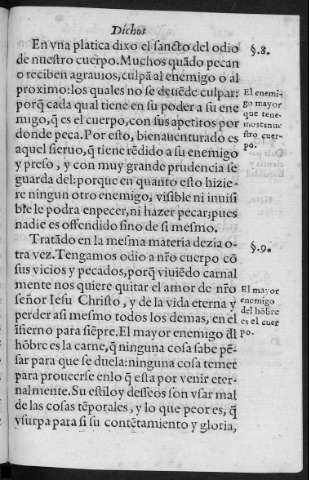 Dichos
En vna platica dixo el sancto del odio
de nuestro cuerpo. Muchos quãdo pecan
o reciben agrauios, culpã al enemigo o al
proximo: los quales no se deuẽde culpar:
porq̃ cada qual tiene en su poder a su ene
migo, q̃ es el cuerpo, con sus apetitos por
donde peca. Por esto, bienauenturado es
aquel sieruo, q̃ tiene rẽdido a su enemigo
y preso, y con muy grande prudencia se
guarda del: porque en quanto esto hizie-
re ningun otro enemigo, visible ni inuisi
ble le podra enpecer, ni hazer pecar; pues
nadie es offendido sino de si mesmo.
Tratãdo en la mesma materia dezia o-
tra vez. Tengamos odio a nr̃o cuerpo cõ
sus vicios y pecados, porq̃ viuiẽdo carnal
mente nos quiere quitar el amor de nr̃o
señor Iesu Christo, y de la vida eterna y
perder asi mesmo todos los demas, en el
ĩfierno para siẽpre. El mayor enemigo dl̃
hõbre es la carne, q̃ ninguna cosa sabe pẽ-
sar para que se duela: ninguna cosa temer
para proueerse enlo q̃ esta por venir eter-
nalmente. Su estilo y desseos son vsar mal
de las cosas tẽporales, y lo que peor es, q̃
vsurpa para si su contẽtamiento y gloria,
§.8.
El enemi-
go mayor
que tene-
mos es nue
stro cuer-
po.
§.9.
El mayor
enemigo
del hõbre
es el cuer
po.